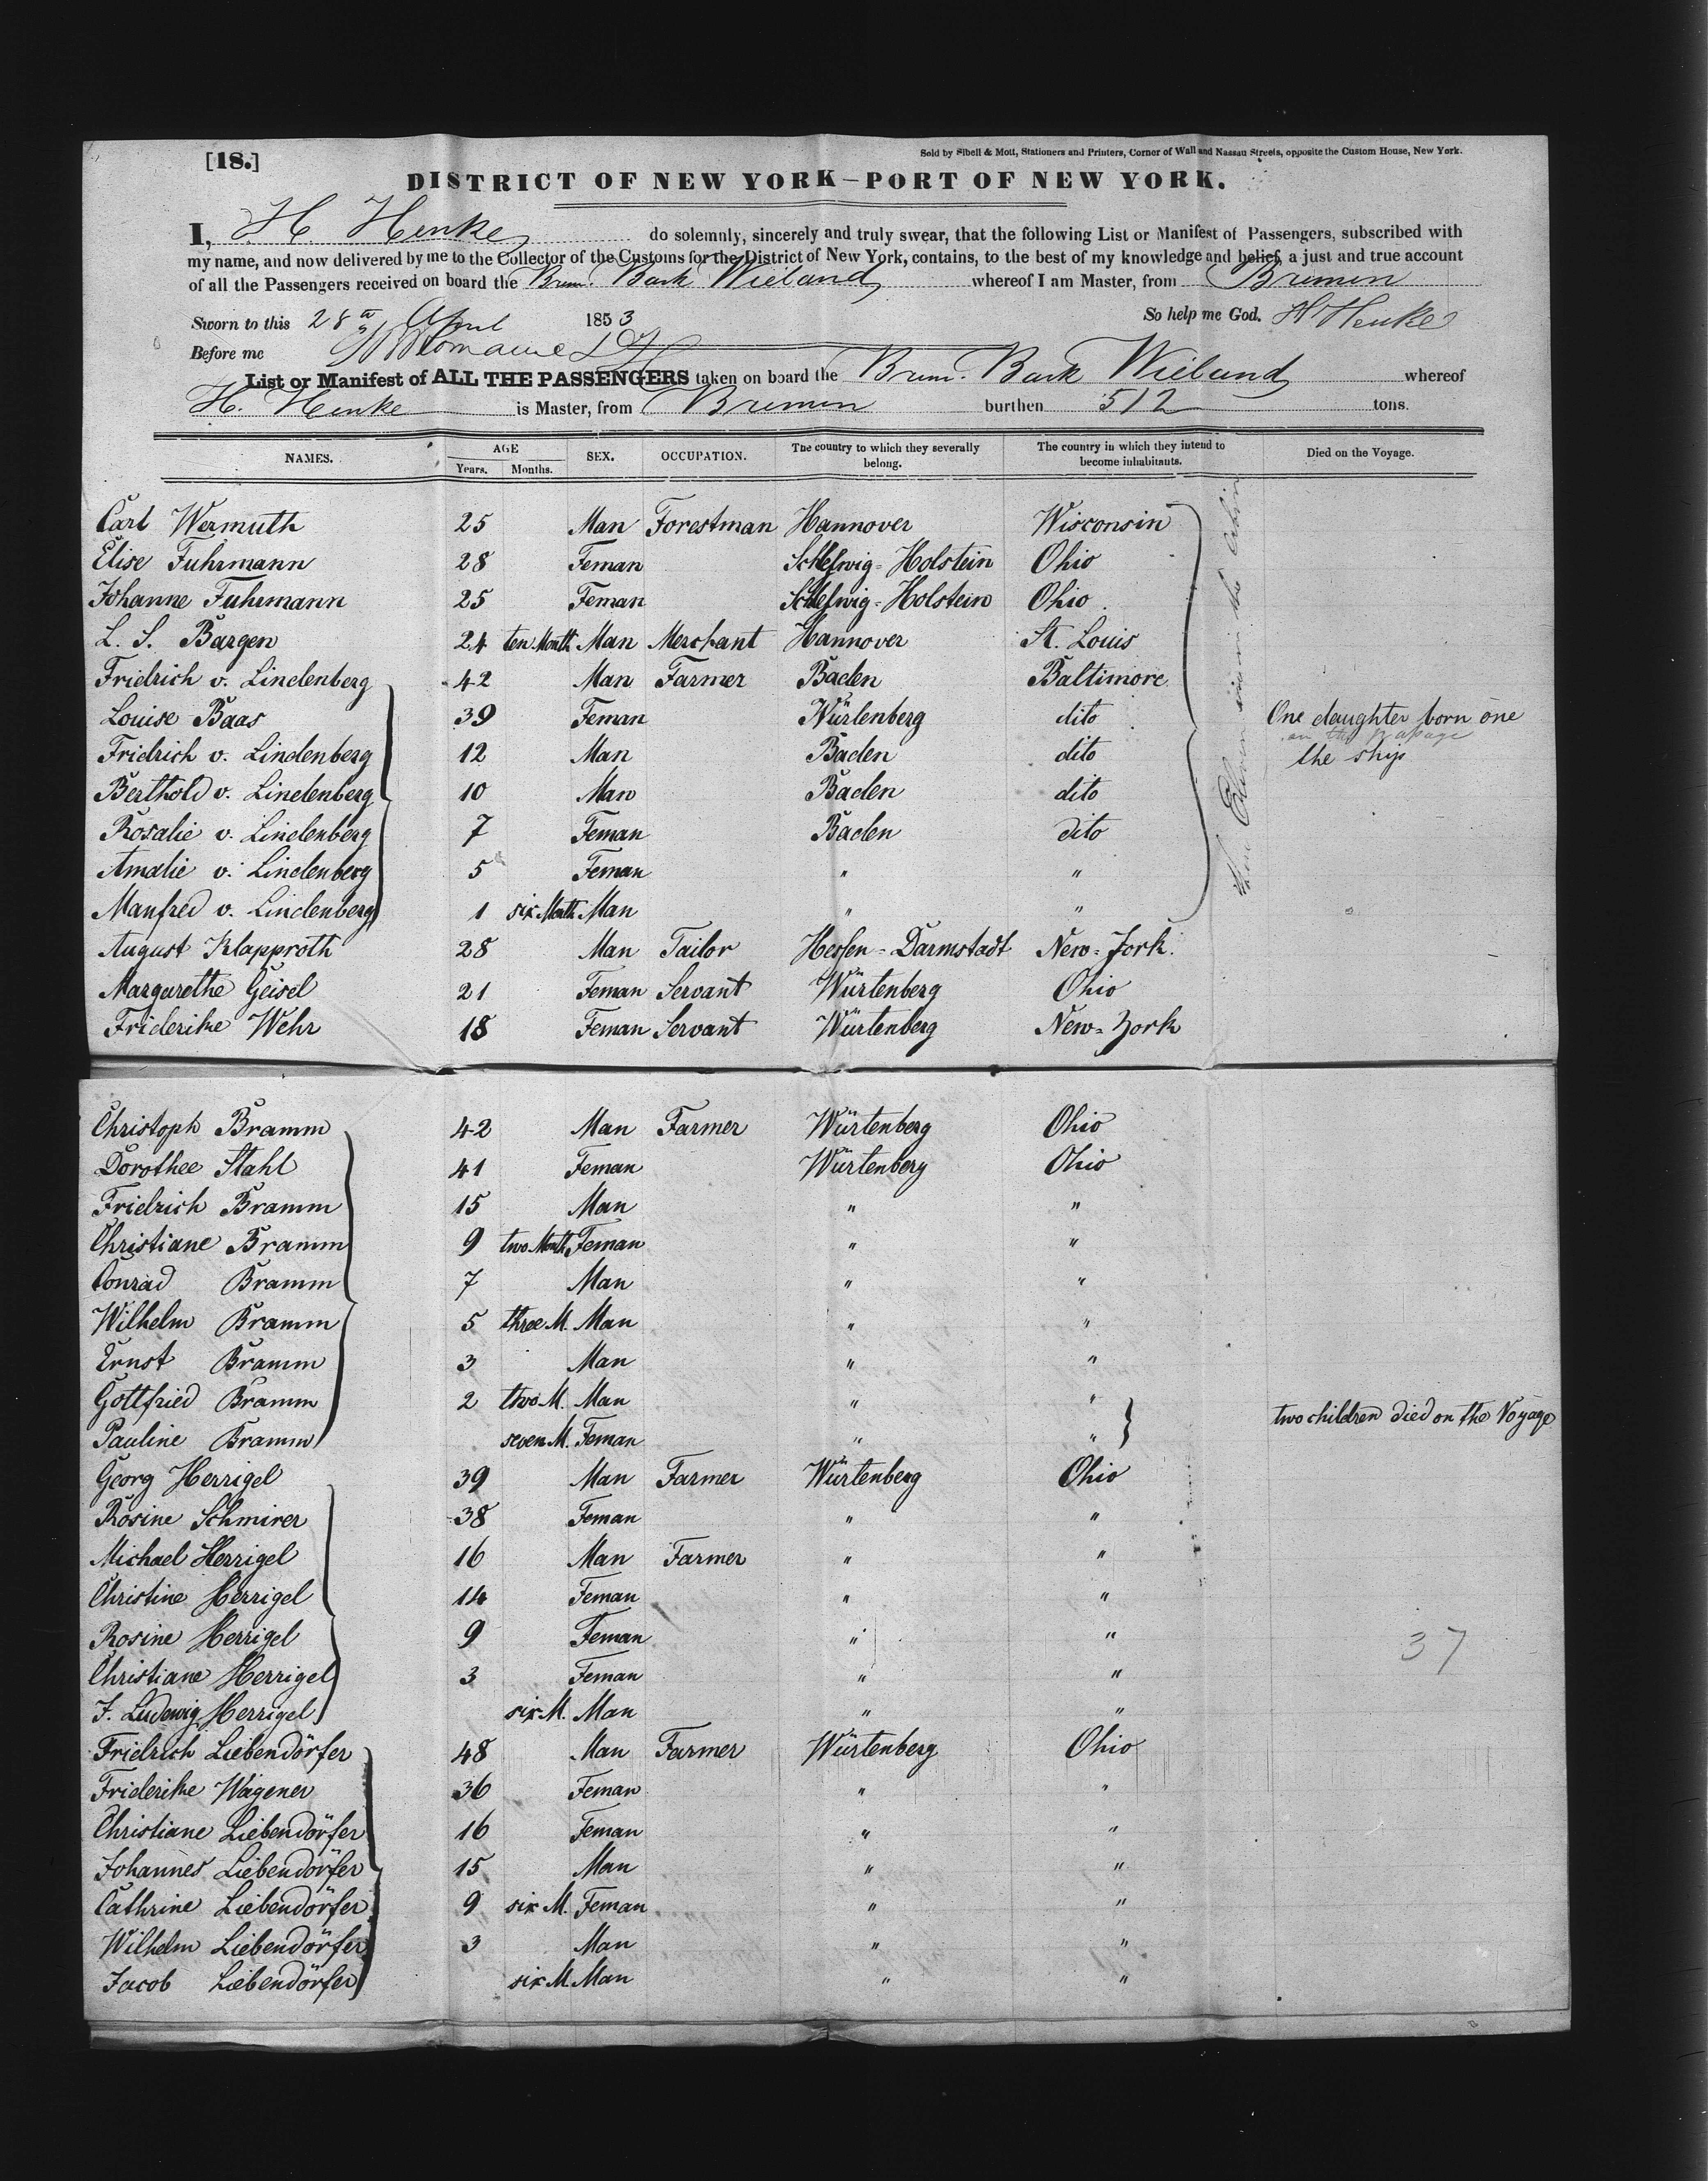 [18.]
Sold by Sibell & Mott, Stationers and Printers, Corner of Wall and Nassau Streets, opposite the Custom House, New York.
DISTRICT OF NEW YORK—PORT OF NEW YORK.
I, H. Henke do solemnly, sincerely and truly swear, that the following List or Manifest of Passengers, subscribed with
my name, and now delivered by me to the Collector of the Customs for the District of New York, contains, to the best of my knowledge and belief, a just and true account
of all the Passengers received on board the Brem. Bark Wieland whereof I am Master, from Bremen
Sworn to this 28th April 1853 So help me God. H Henke
Before me
List or Manifest of ALL THE PASSENGERS taken on board the Brem. Bark Wieland whereof
H. Henke is Master, from Bremen burthen 512 tons.
NAMES. AGE Years. Months. SEX. OCCUPATION. The country to which they severally belong. The country in which they intend to become inhabitants. Died on the Voyage.
Carl Wermuth 25 Man Forestman Hannover Wisconsin
Elise Fuhrmann 28 Feman Schleswig-Holstein Ohio
Johanne Fuhrmann 25 Feman Schleswig-Holstein Ohio
L. S. Bargen 24 ten Month Man Merchant Hannover St. Louis
Fridrich v. Lindenberg 42 Man Farmer Baden Baltimore
Louise Baas 39 Feman Würtenberg dito One daughter born one
on the Passage
Fridrich v. Lindenberg 12 Man Baden dito the ship
Berthold v. Lindenberg 10 Man Baden dito
Rosalie v. Lindenberg 7 Feman Baden dito
Amalie v. Lindenberg 5 Feman " "
Manfred v. Lindenberg 1 six Month Man " "
in the Cabin
August Klapproth 28 Man Tailor Hessen-Darmstadt New-York.
Margarethe Geisel 21 Feman Servant Würtenberg Ohio
Friderike Wehr 18 Feman Servant Würtenberg New-York
Christoph Bramm 42 Man Farmer Würtenberg Ohio
Dorothee Stahl 41 Feman Würtenberg Ohio
Fridrich Bramm 15 Man " "
Christiane Bramm 9 two Month Feman " "
Conrad Bramm 7 Man " "
Wilhelm Bramm 5 three M. Man " "
Ernst Bramm 3 Man " "
Gottfried Bramm 2 two M. Man " " two children died on the Voyage
Pauline Bramm seven M. Feman " "
Georg Herrigel 39 Man Farmer Würtenberg Ohio
Rosine Schmirer 38 Feman " "
Michael Herrigel 16 Man Farmer " "
Christine Herrigel 14 Feman " "
Rosine Herrigel 9 Feman " " 37
Christiane Herrigel 3 Feman " "
J. Ludewig Herrigel six M. Man " "
Fridrich Liebendörfer 48 Man Farmer Würtenberg Ohio
Friderike Wägener 36 Feman " "
Christiane Liebendörfer 16 Feman " "
Johannes Liebendörfer 15 Man " "
Cathrine Liebendörfer 9 six M. Feman " "
Wilhelm Liebendörfer 3 Man " "
Jacob Liebendörfer six M. Man " "